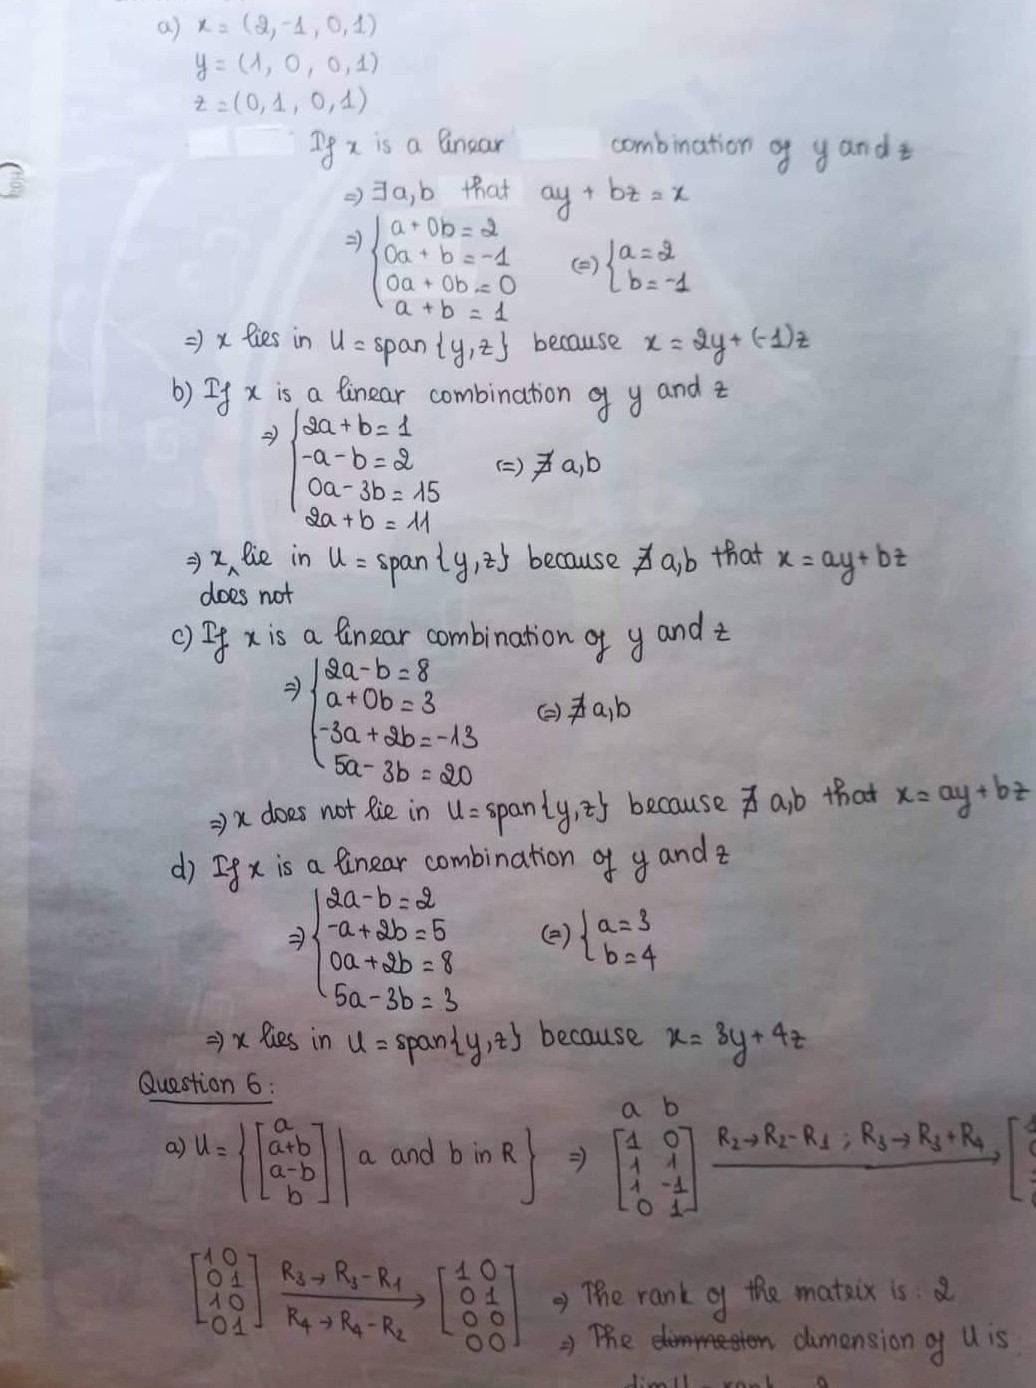 a) x = (2, -1, 0, 1)
y = (1, 0, 0, 1)
z = (0, 1, 0, 1)
If x is a linear combination of y and z
⇒ ∃a,b that ay + bz = x
⇒ { a + 0b = 2
0a + b = -1
0a + 0b = 0
a + b = 1
(=) { a = 2
b = -1
⇒ x lies in U = span{y,z} because x = 2y + (-1)z
b) If x is a linear combination of y and z
⇒ { 2a + b = 1
-a - b = 2
0a - 3b = 15
2a + b = 11
(=) ∄ a,b
⇒ x ^ lie in U = span{y,z} because ∄ a,b that x = ay + bz
does not
c) If x is a linear combination of y and z
⇒ { 2a - b = 8
a + 0b = 3
-3a + 2b = -13
5a - 3b = 20
(=) ∄ a,b
⇒ x does not lie in U = span{y,z} because ∄ a,b that x = ay + bz
d) If x is a linear combination of y and z
⇒ { 2a - b = 2
-a + 2b = 5
0a + 2b = 8
5a - 3b = 3
(=) { a = 3
b = 4
⇒ x lies in U = span{y,z} because x = 3y + 4z
Question 6:
a) U = { [a
a+b
a-b
b] | a and b in R } ⇒
a b
[1 0
1 1
1 -1
0 1]
R2 → R2 - R1 ; R3 → R3 + R4
[1 0
0 1
1 0
0 1]
R3 → R3 - R1
R4 → R4 - R2
[1 0
0 1
0 0
0 0]
⇒ The rank of the matrix is : 2
⇒ The dimmesion dimension of U is